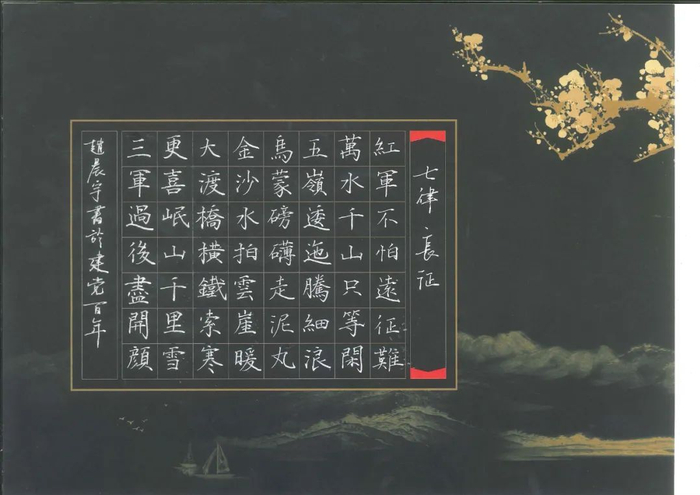 七律 長征
紅軍不怕遠征難
萬水千山只等閑
五嶺逶迤騰細浪
烏蒙磅礴走泥丸
金沙水拍雲崖暖
大渡橋橫鐵索寒
更喜岷山千里雪
三軍過後盡開顏
趙晨宇書於建党百年